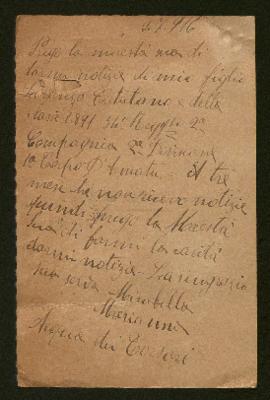 Prego la maestà sua di
darmi notizie di mio figlio
Lorenzo Catalano e della
classe 1891 36 Regg 2ª
Compagnia 2ª Divisione
10 Corpo d'Armata è tre
mesi che non ricevo notizie
quindi prego la Maestà
Sua di farmi la carità
darmi notizie. La ringrazio
sua serva Mirabella
Marianna
Acqua dei Corsari